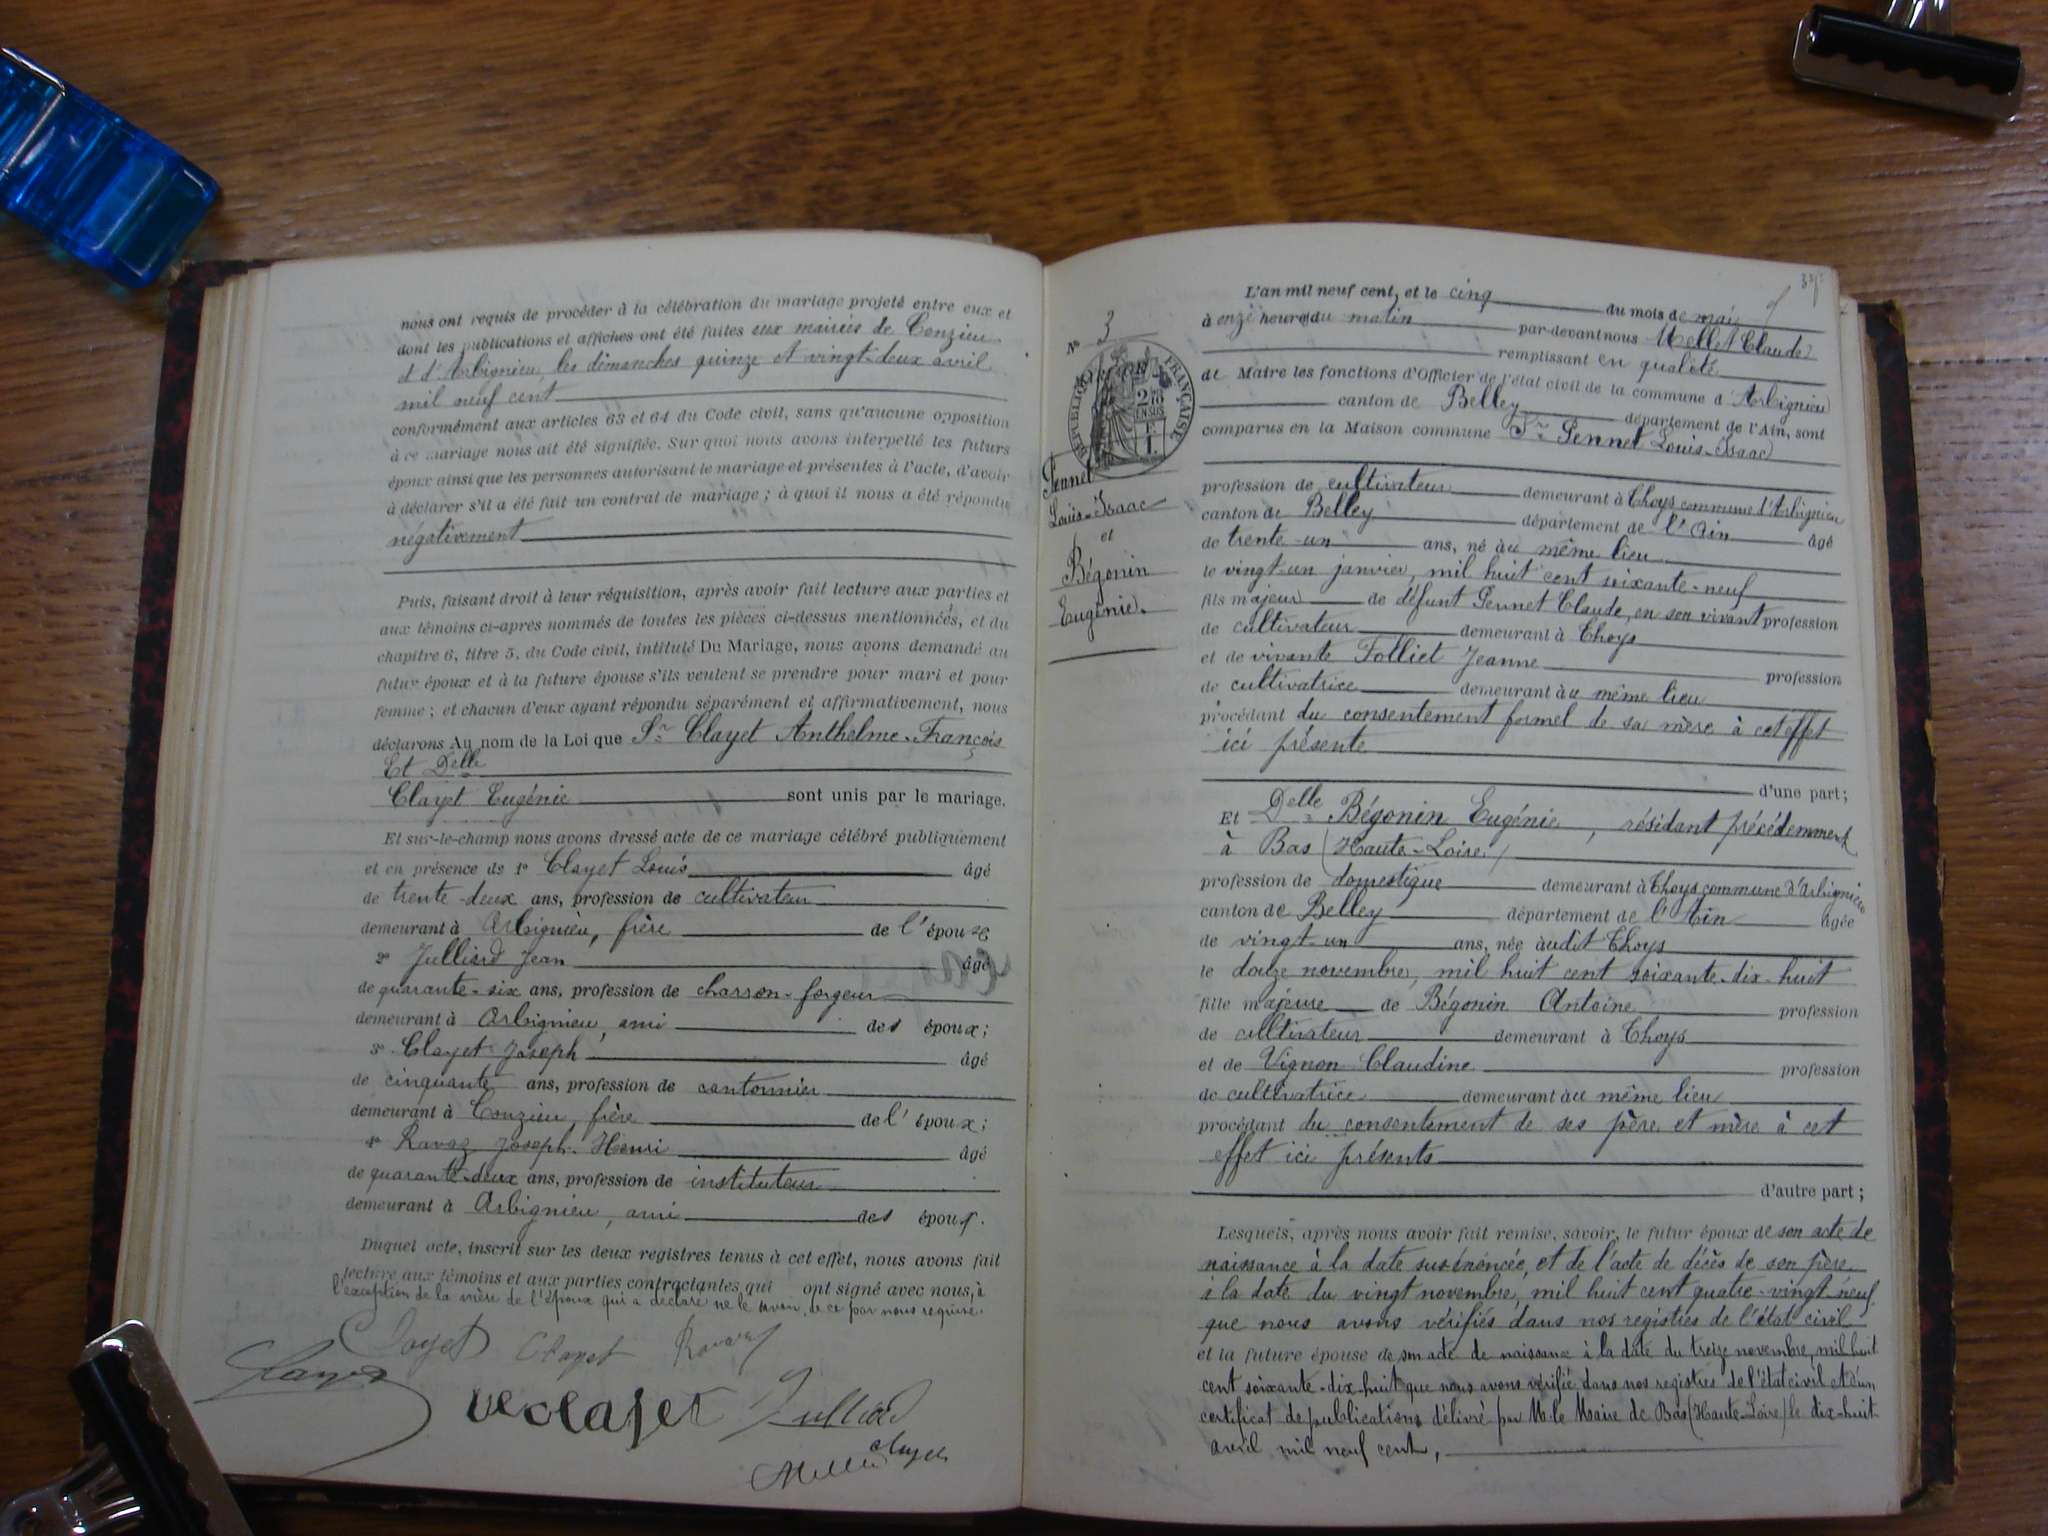 nous ont requis de procéder à la célébration du mariage projeté entre eux et
dont les publications et affiches ont été faites aux mairies de Conzieu
et d'Arbignieu, les dimanches quinze et vingt-deux avril
mil neuf cent
conformément aux articles 63 et 64 du Code civil, sans qu'aucune opposition
à ce mariage nous ait été signifiée. Sur quoi nous avons interpellé les futurs
époux ainsi que les personnes autorisant le mariage et présentes à l'acte, d'avoir
à déclarer s'il a été fait un contrat de mariage ; à quoi il nous a été répondu
négativement
Puis, faisant droit à leur réquisition, après avoir fait lecture aux parties et
aux témoins ci-après nommés de toutes les pièces ci-dessus mentionnées, et du
chapitre 6, titre 5, du Code civil, intitulé Du Mariage, nous avons demandé au
futur époux et à la future épouse s'ils veulent se prendre pour mari et pour
femme ; et chacun d'eux ayant répondu séparément et affirmativement, nous
déclarons Au nom de la Loi que Sr Clayet Anthelme-François
Et Delle
Clayet Eugénie sont unis par le mariage.
Et sur-le-champ nous avons dressé acte de ce mariage célébré publiquement
et en présence de 1° Clayet Louis âgé
de trente-deux ans, profession de cultivateur
demeurant à Arbignieu, frère de l'épouse
2° Julliard Jean âgé
de quarante-six ans, profession de charron-forgeur
demeurant à Arbignieu, ami des époux ;
3° Clayet Joseph âgé
de cinquante ans, profession de cantonnier
demeurant à Conzieu, frère de l'époux ;
4° Ravaz Joseph-Henri âgé
de quarante-deux ans, profession de instituteur
demeurant à Arbignieu, ami des époux.
Duquel acte, inscrit sur les deux registres tenus à cet effet, nous avons fait
lecture aux témoins et aux parties contractantes qui ont signé avec nous, à
l'exception de la mère de l'époux qui a déclaré ne le savoir, de ce par nous requise.
Clayet Clayet Ravaz
Clayet
Clayet Julliard
Mellet Clayet
L'an mil neuf cent, et le cinq du mois de mai
à onze heures du matin par-devant nous Mellet Claude
remplissant en qualité
de Maire les fonctions d'Officier de l'état civil de la commune d'Arbignieu
canton de Belley département de l'Ain, sont
comparus en la Maison commune Sr Pennet Louis-Isaac
N° 3
RÉPUBLIQUE FRANÇAISE
2/10 EN SUS
Pennet
Louis-Isaac
et
Bégonin
Eugénie.
profession de cultivateur demeurant à Thoys commune d'Arbignieu
canton de Belley département de l'Ain âgé
de trente-un ans, né au même lieu
le vingt-un janvier, mil huit cent soixante-neuf
fils majeur de défunt Pennet Claude, en son vivant profession
de cultivateur demeurant à Thoys
et de vivante Folliet Jeanne profession
de cultivatrice demeurant au même lieu
procédant du consentement formel de sa mère à cet effet
ici présente
d'une part ;
Et Delle Bégonin Eugénie, résidant précédemment
à Bas (Haute-Loire)
profession de domestique demeurant à Thoys commune d'Arbignieu
canton de Belley département de l'Ain âgée
de vingt-un ans, née audit Thoys
le douze novembre, mil huit cent soixante-dix-huit
fille majeure de Bégonin Antoine profession
de cultivateur demeurant à Thoys
et de Vignon Claudine profession
de cultivatrice demeurant au même lieu
procédant du consentement de ses père et mère à cet
effet ici présents
d'autre part ;
Lesquels, après nous avoir fait remise, savoir, le futur époux de son acte de
naissance à la date susénoncée, et de l'acte de décès de son père
à la date du vingt novembre, mil huit cent quatre-vingt-neuf
que nous avons vérifiés dans nos registres de l'état civil
et la future épouse de son acte de naissance à la date du treize novembre, mil huit
cent soixante-dix-huit que nous avons vérifié dans nos registres de l'état civil et d'un
certificat de publications délivré par M. le Maire de Bas (Haute-Loire) le dix-huit
avril mil neuf cent,